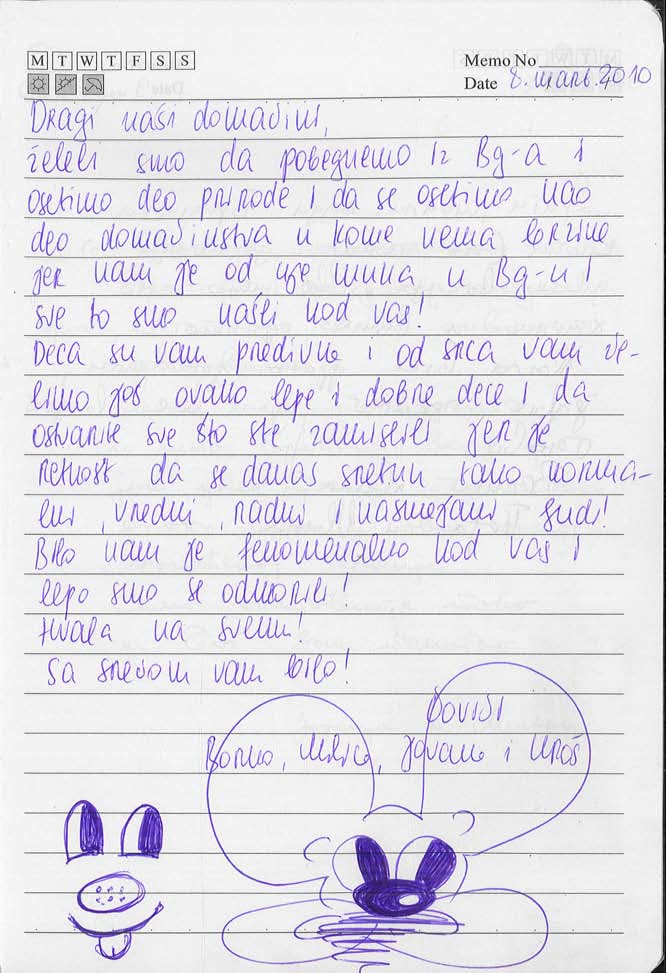 M T W T F S S
Memo No
Date 8. mart. 2010
Dragi naši domaćini,
želeli smo da pobegnemo iz Bg-a i
osetimo deo prirode i da se osetimo kao
deo domaćinstva u kome nema brzine
jer nam je od nje muka u Bg-u!
sve to smo našli kod vas!
Deca su vam predivna i od srca vam že-
limo još ovako lepe i dobre dece i da
ostvarite sve što ste zamislili jer je
retkost da se danas sretnu tako norma-
lni, vredni, radni i nasmejani ljudi!
Bilo nam je fenomenalno kod vas i
lepo smo se odmorili!
Hvala na svemu!
Sa srećom vam bilo!
Borko, Milica, Jovana i Uroš